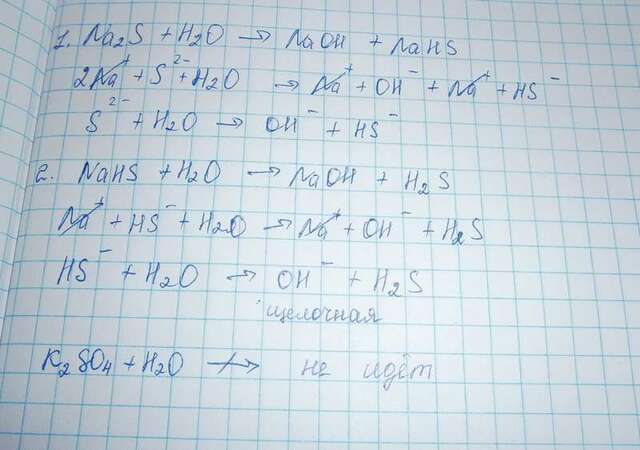 1. Na₂S + H₂O → NaOH + NaHS
2Na⁺ + S²⁻ + H₂O → Na⁺ + OH⁻ + Na⁺ + HS⁻
S²⁻ + H₂O → OH⁻ + HS⁻
2. NaHS + H₂O → NaOH + H₂S
Na⁺ + HS⁻ + H₂O → Na⁺ + OH⁻ + H₂S
HS⁻ + H₂O → OH⁻ + H₂S
щелочная
K₂SO₄ + H₂O ↛ не идёт